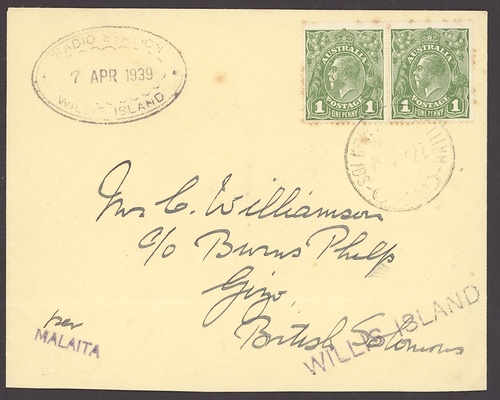 RADIO STATION
7 APR 1939
WILLIS ISLAND
AUSTRALIA
1 POSTAGE 1
ONE PENNY
AUSTRALIA
1 POSTAGE 1
ONE PENNY
Mrs C. Williamson
c/o Burns Philp
Gizo,
British Solomons
per
MALAITA
WILLIS ISLAND